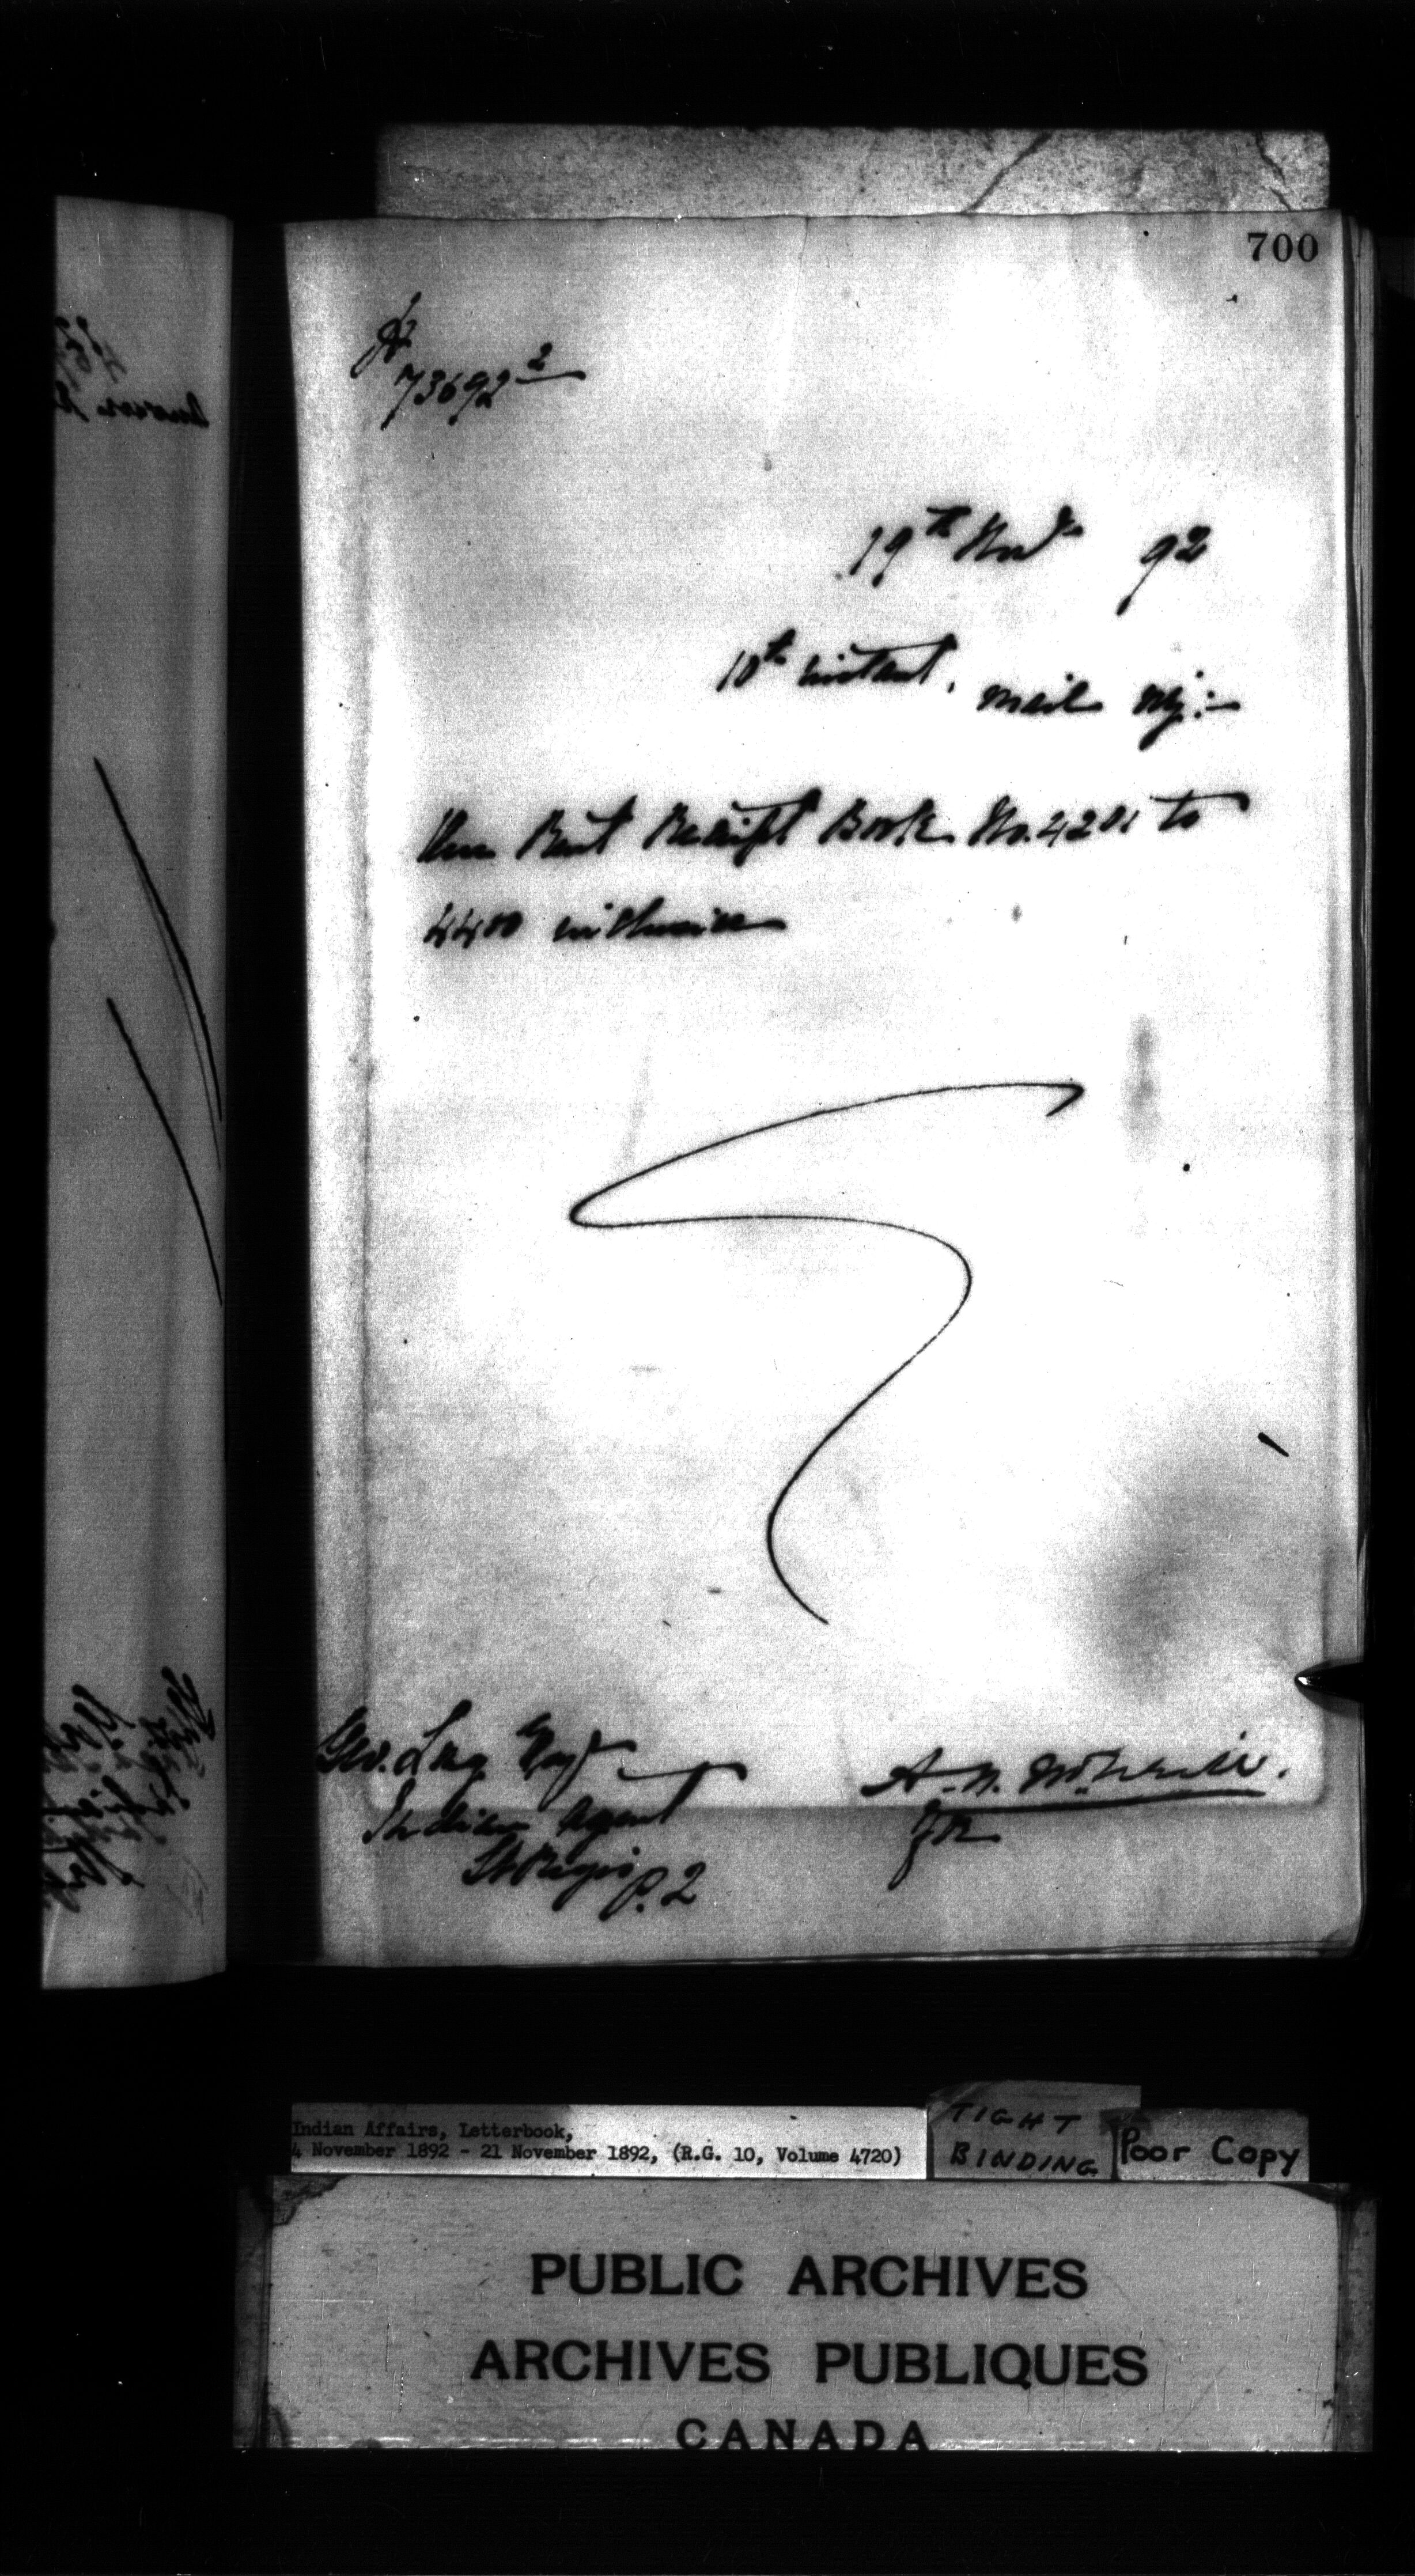 700
73692²
19th Nov 92
10th instant, mail viz:-
One Rent Receipt Book No. 4201 to
4400 inclusive
Geo. Long Esqr
Indian Agent
St Regis
P.Q
A. N. McNeill.
Indian Affairs, Letterbook,
4 November 1892 - 21 November 1892, (R.G. 10, Volume 4720)
TIGHT
BINDING
Poor Copy
PUBLIC ARCHIVES
ARCHIVES PUBLIQUES
CANADA